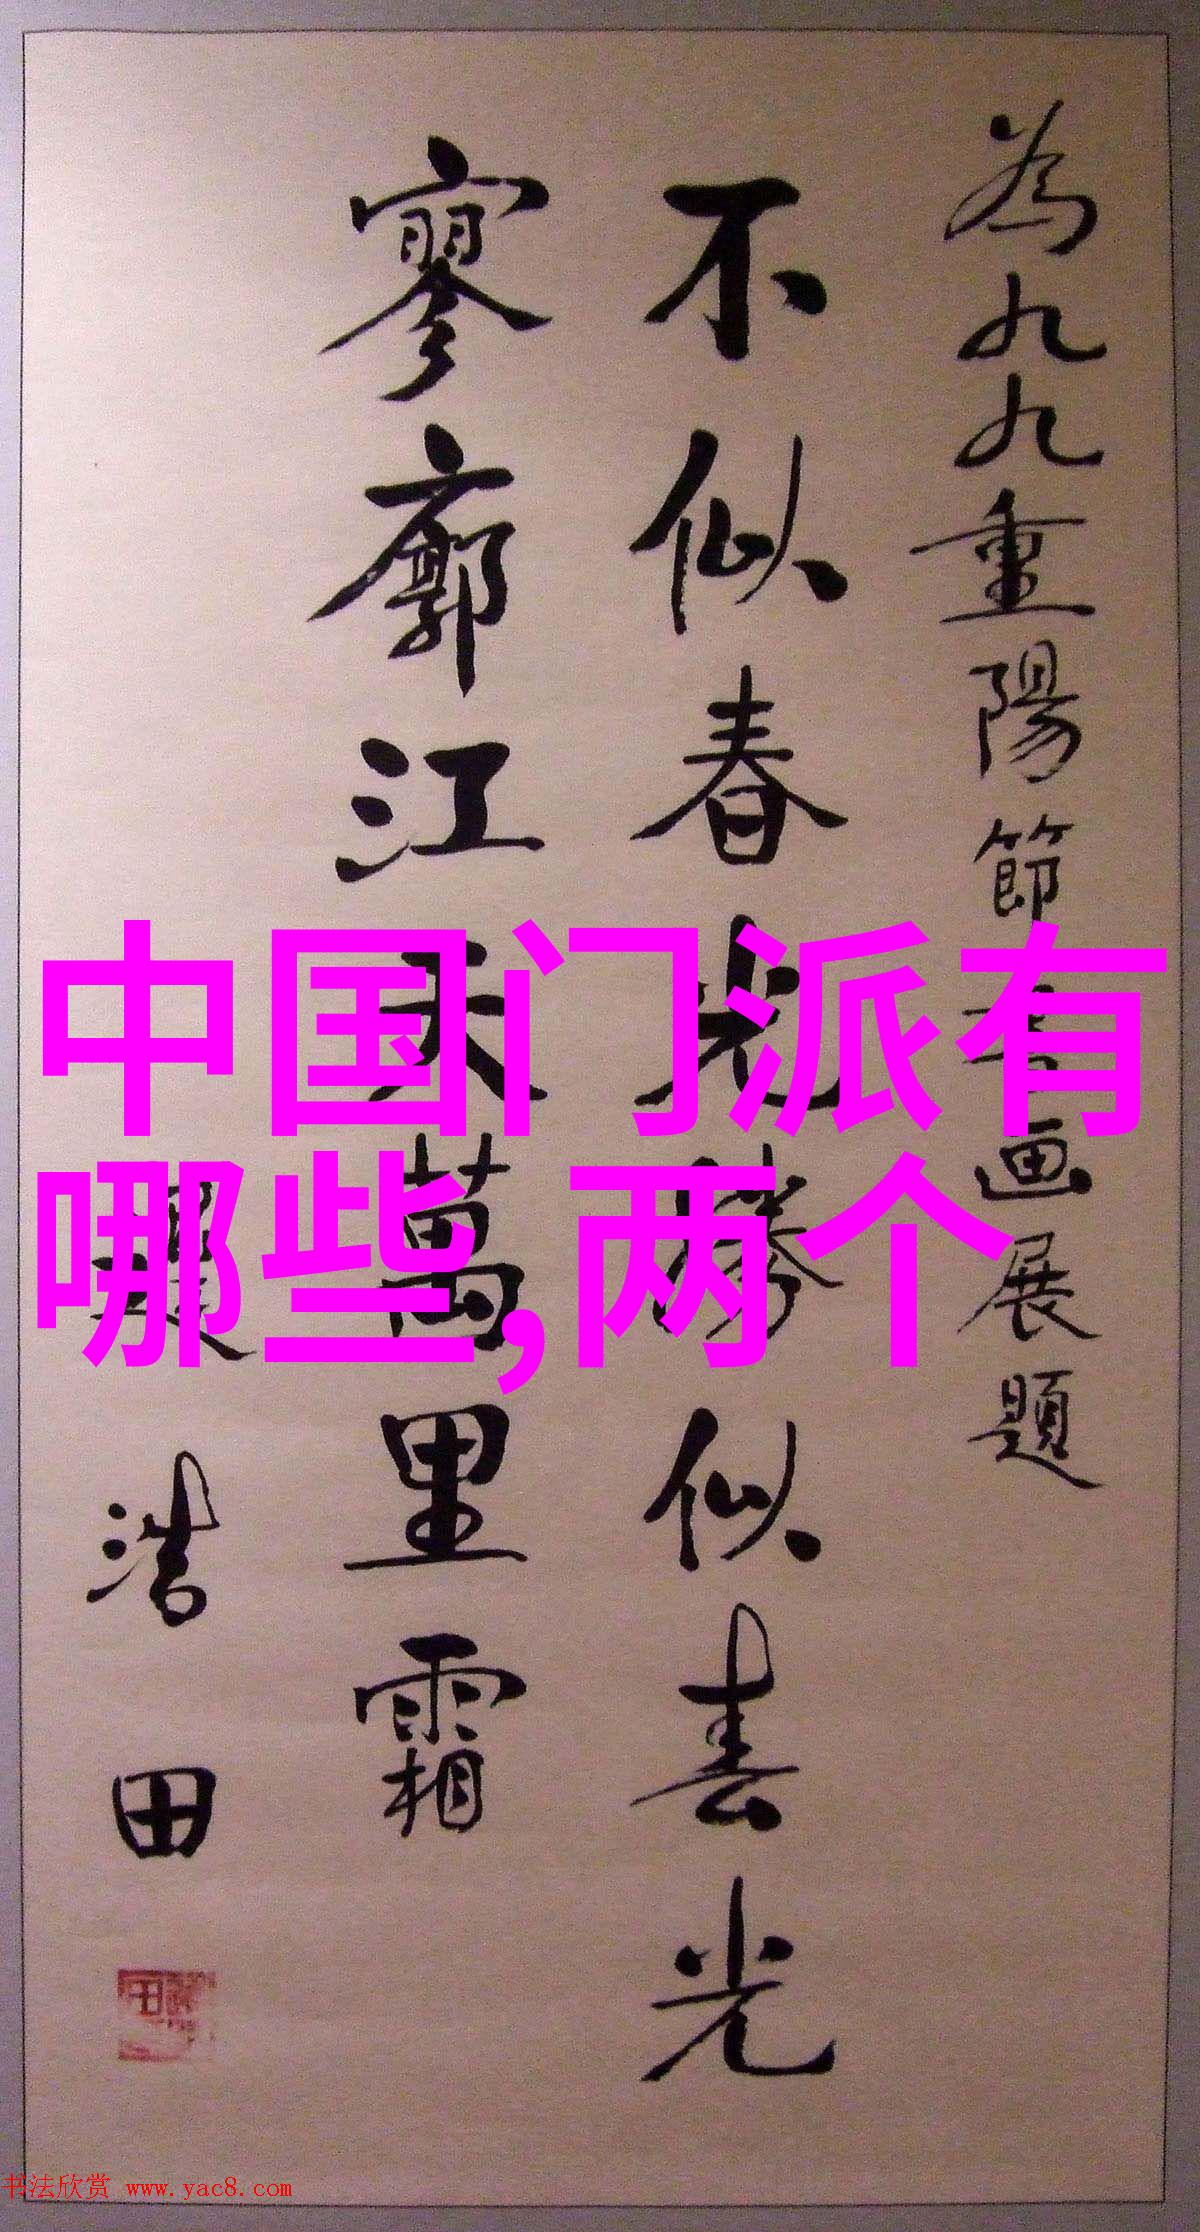 為九九重陽節書画展題
不似春光勝似春光
寥廓江天萬里霜
浩田
中国门派有
哪些,两个
书法欣赏 www.yac8.com